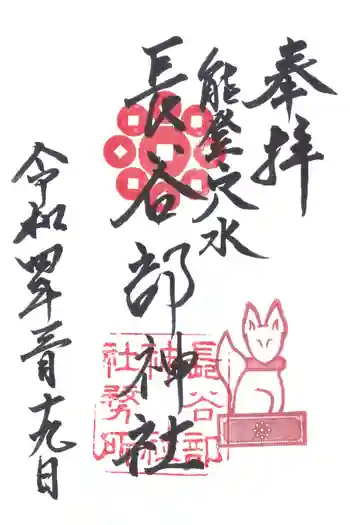 奉拝
能登穴水
長谷部神社
長谷部
神社
社務所
令和四年三月十九日